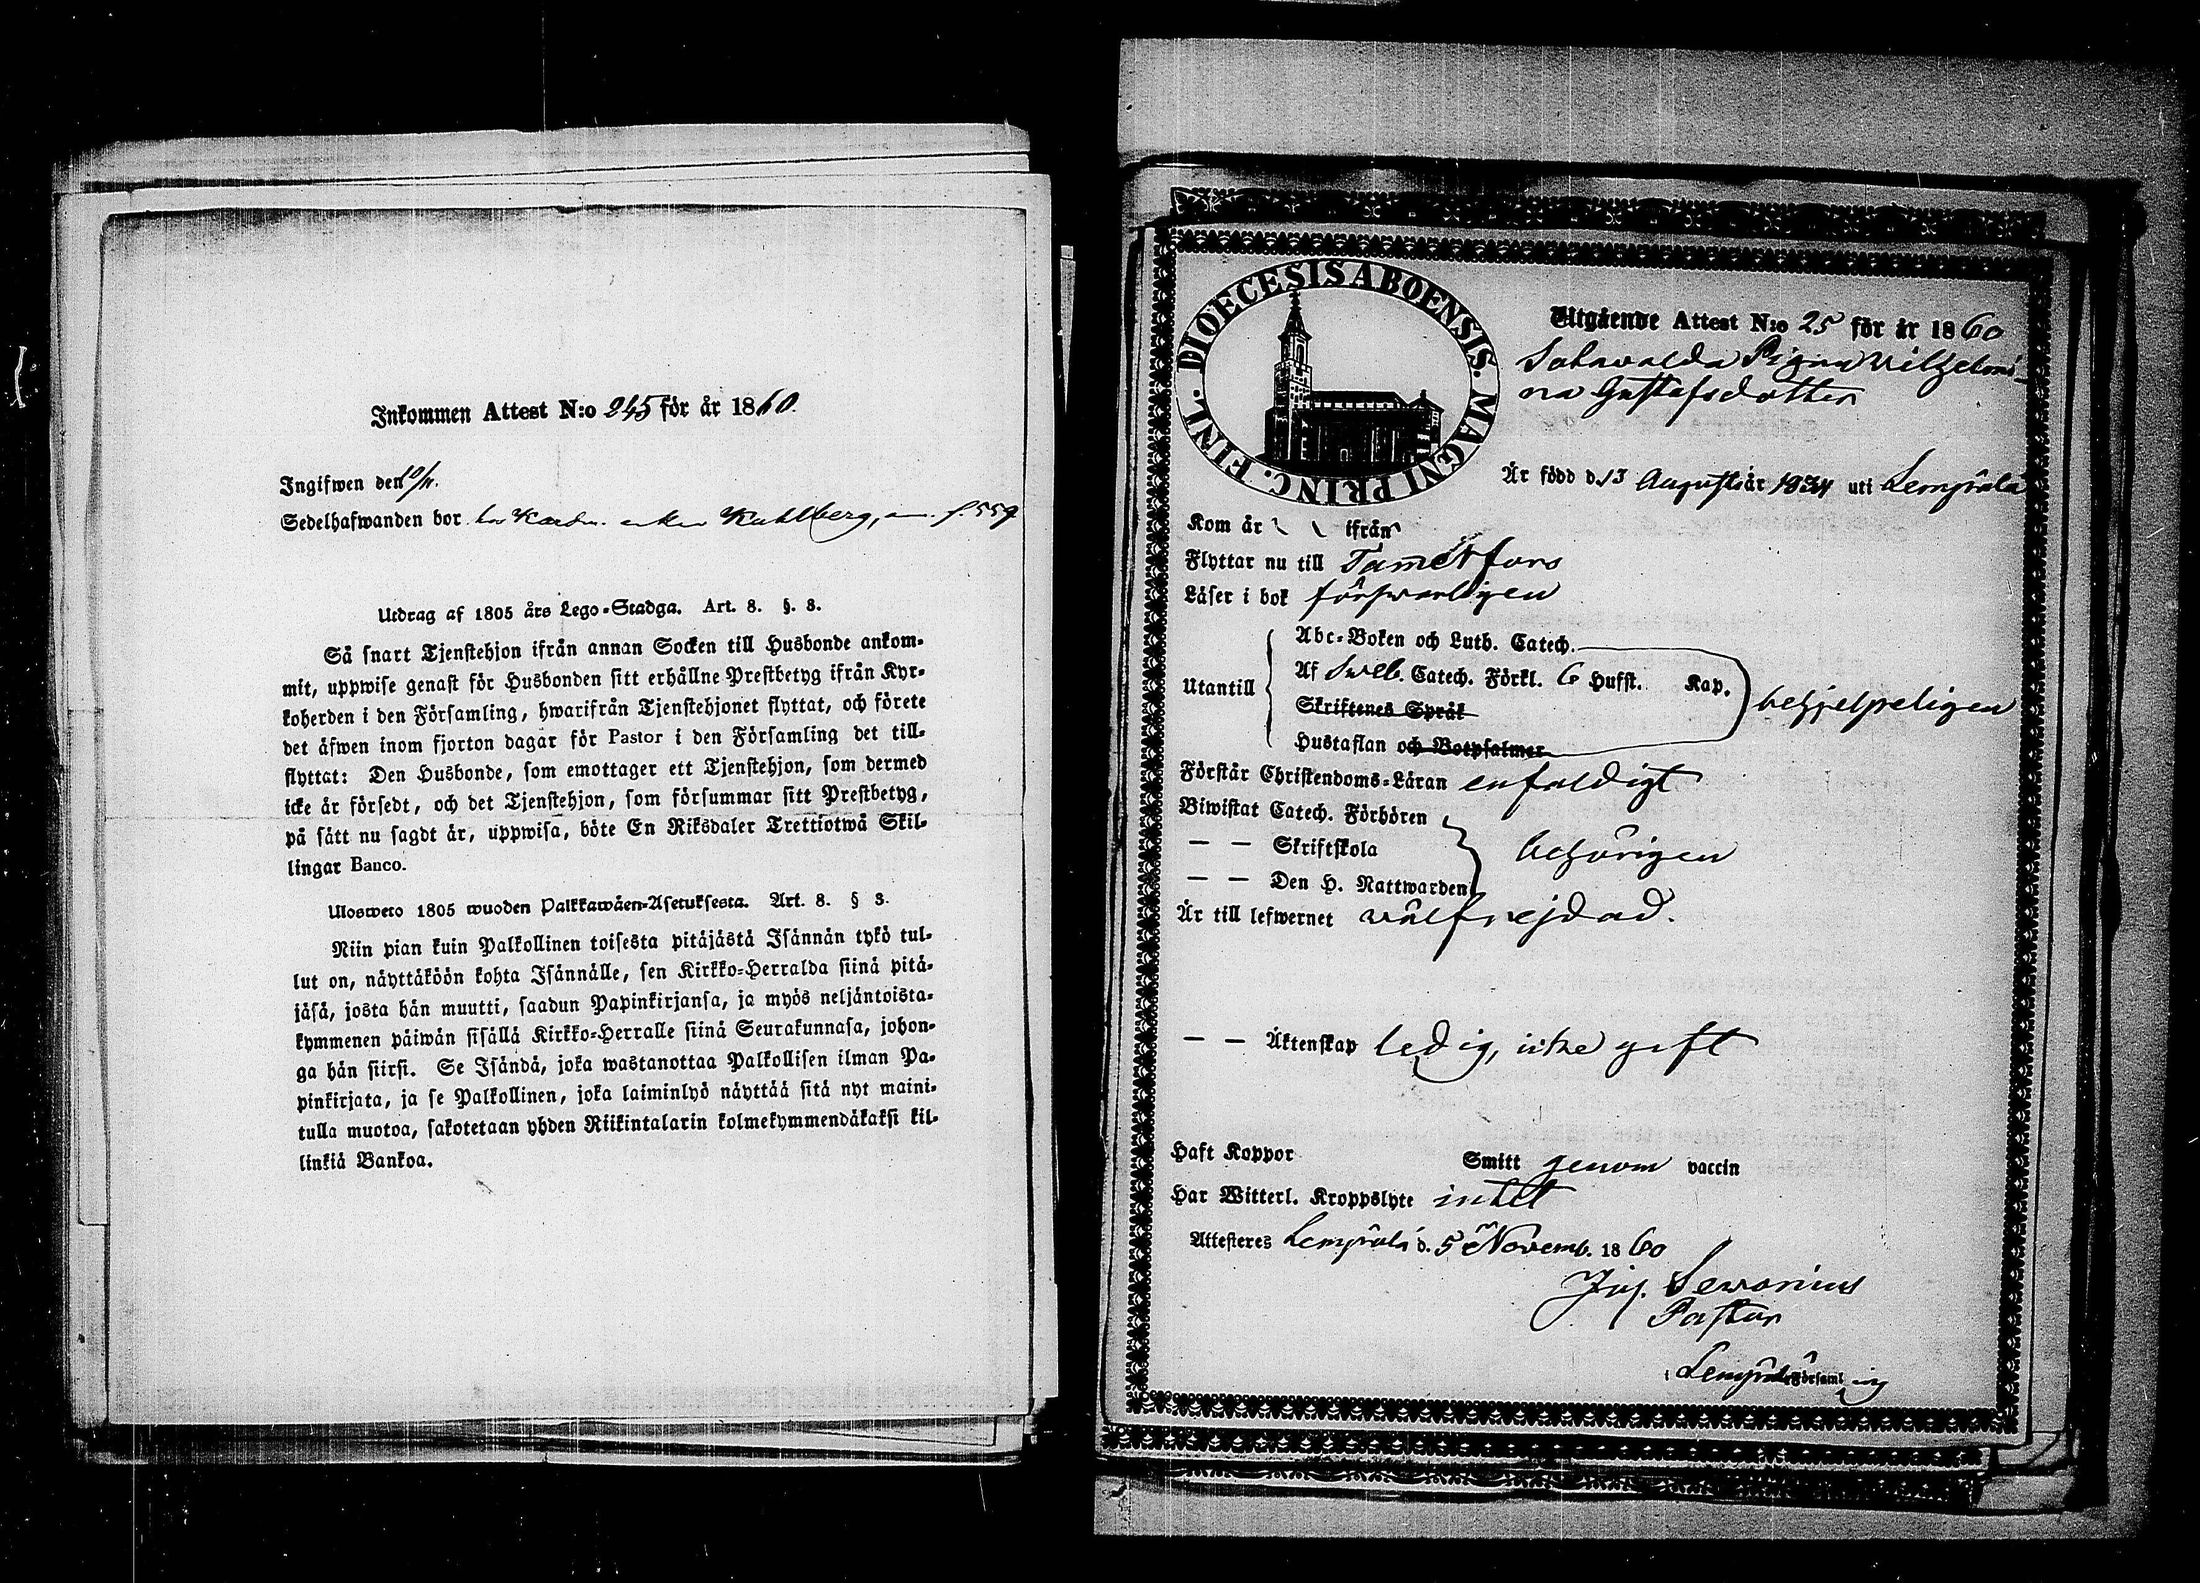 Inkommen Attest N:o 245 för år 1860.
Ingifwen den 10/11.
Sedelhafwanden bor hos enkan Kahlberg, f. 559
Utdrag af 1805 års Lego-Stadga. Art. 8. §. 3.
Så snart Tjenstehjon ifrån annan Socken till Husbonde ankom-
mit, uppwise genast för Husbonden sitt erhållne Prestbetyg ifrån Kyr-
koherden i den Församling, hwarifrån Tjenstehjonet flyttat, och förete
det äfwen inom fjorton dagar för Pastor i den Församling det till-
flyttat: Den Husbonde, som emottager ett Tjenstehjon, som dermed
icke är försedt, och det Tjenstehjon, som försummar sitt Prestbetyg,
på sätt nu sagdt är, uppwisa, böte En Riksdaler Trettiotwå Skil-
lingar Banco.
Ulosweto 1805 wuoden Palkkawäen-Asetuksesta. Art. 8. § 3.
Niin pian kuin Palkollinen toisesta pitäjästä Isännän tykö tul-
lut on, näyttäköön kohta Isännälle, sen Kirkko-Herralda siinä pitä-
jäsä, josta hän muutti, saadun Papinkirjansa, ja myös neljäntoista-
kymmenen päiwän sisällä Kirkko-Herralle siinä Seurakunnasa, johon-
ga hän siirsi. Se Isändä, joka wastanottaa Palkollisen ilman Pa-
pinkirjata, ja se Palkollinen, joka laiminlyö näyttää sitä nyt maini-
tulla muotoa, sakotetaan yhden Riikintalarin kolmekymmendäkaksi kil-
linkiä Bankoa.
DIOECESIS ABOENSIS. MAGNI PRINC. FINL.
Utgående Attest N:o 25 för år 1860
Pigan Wilhelmi-
na Gustafsdotter
Är född d. 13 Augusti år 1834 uti Lempäälä
Kom år ifrån
Flyttar nu till Tammerfors
Läser i bok förswarligen
Utantill
Abc-Boken och Luth. Catech.
Af Sweb. Catech. Förkl. 6 Hufst. Kap.
Skriftenes Språk
Hustaflan och Botpsalmer
behjelpeligen
Förstår Christendoms-Läran enfaldigt
Biwistat Catech. Förhören
— — Skriftskola behörigen
— — Den H. Nattwarden
Är till lefwernet wälfrejdad.
— — Äktenskap ledig, icke gift
Haft Koppor Smitt genom vaccin
Har Witterl. Kroppslyte intet
Attesteres Lempäälä d. 5 Novemb. 1860
Pastor
i Lempäälä Församling